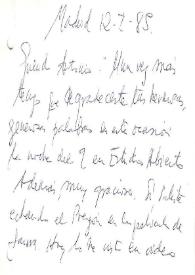 Madrid 12-7-85.
Querido Antonio: Una vez más
tengo que agradecerte tus hermosas,
generosas palabras en esta ocasión
la noche del 9 en Estudio Abierto
Además, muy graciosa. El
el Pregón en la película de
Saura. Hoy lo he visto en video